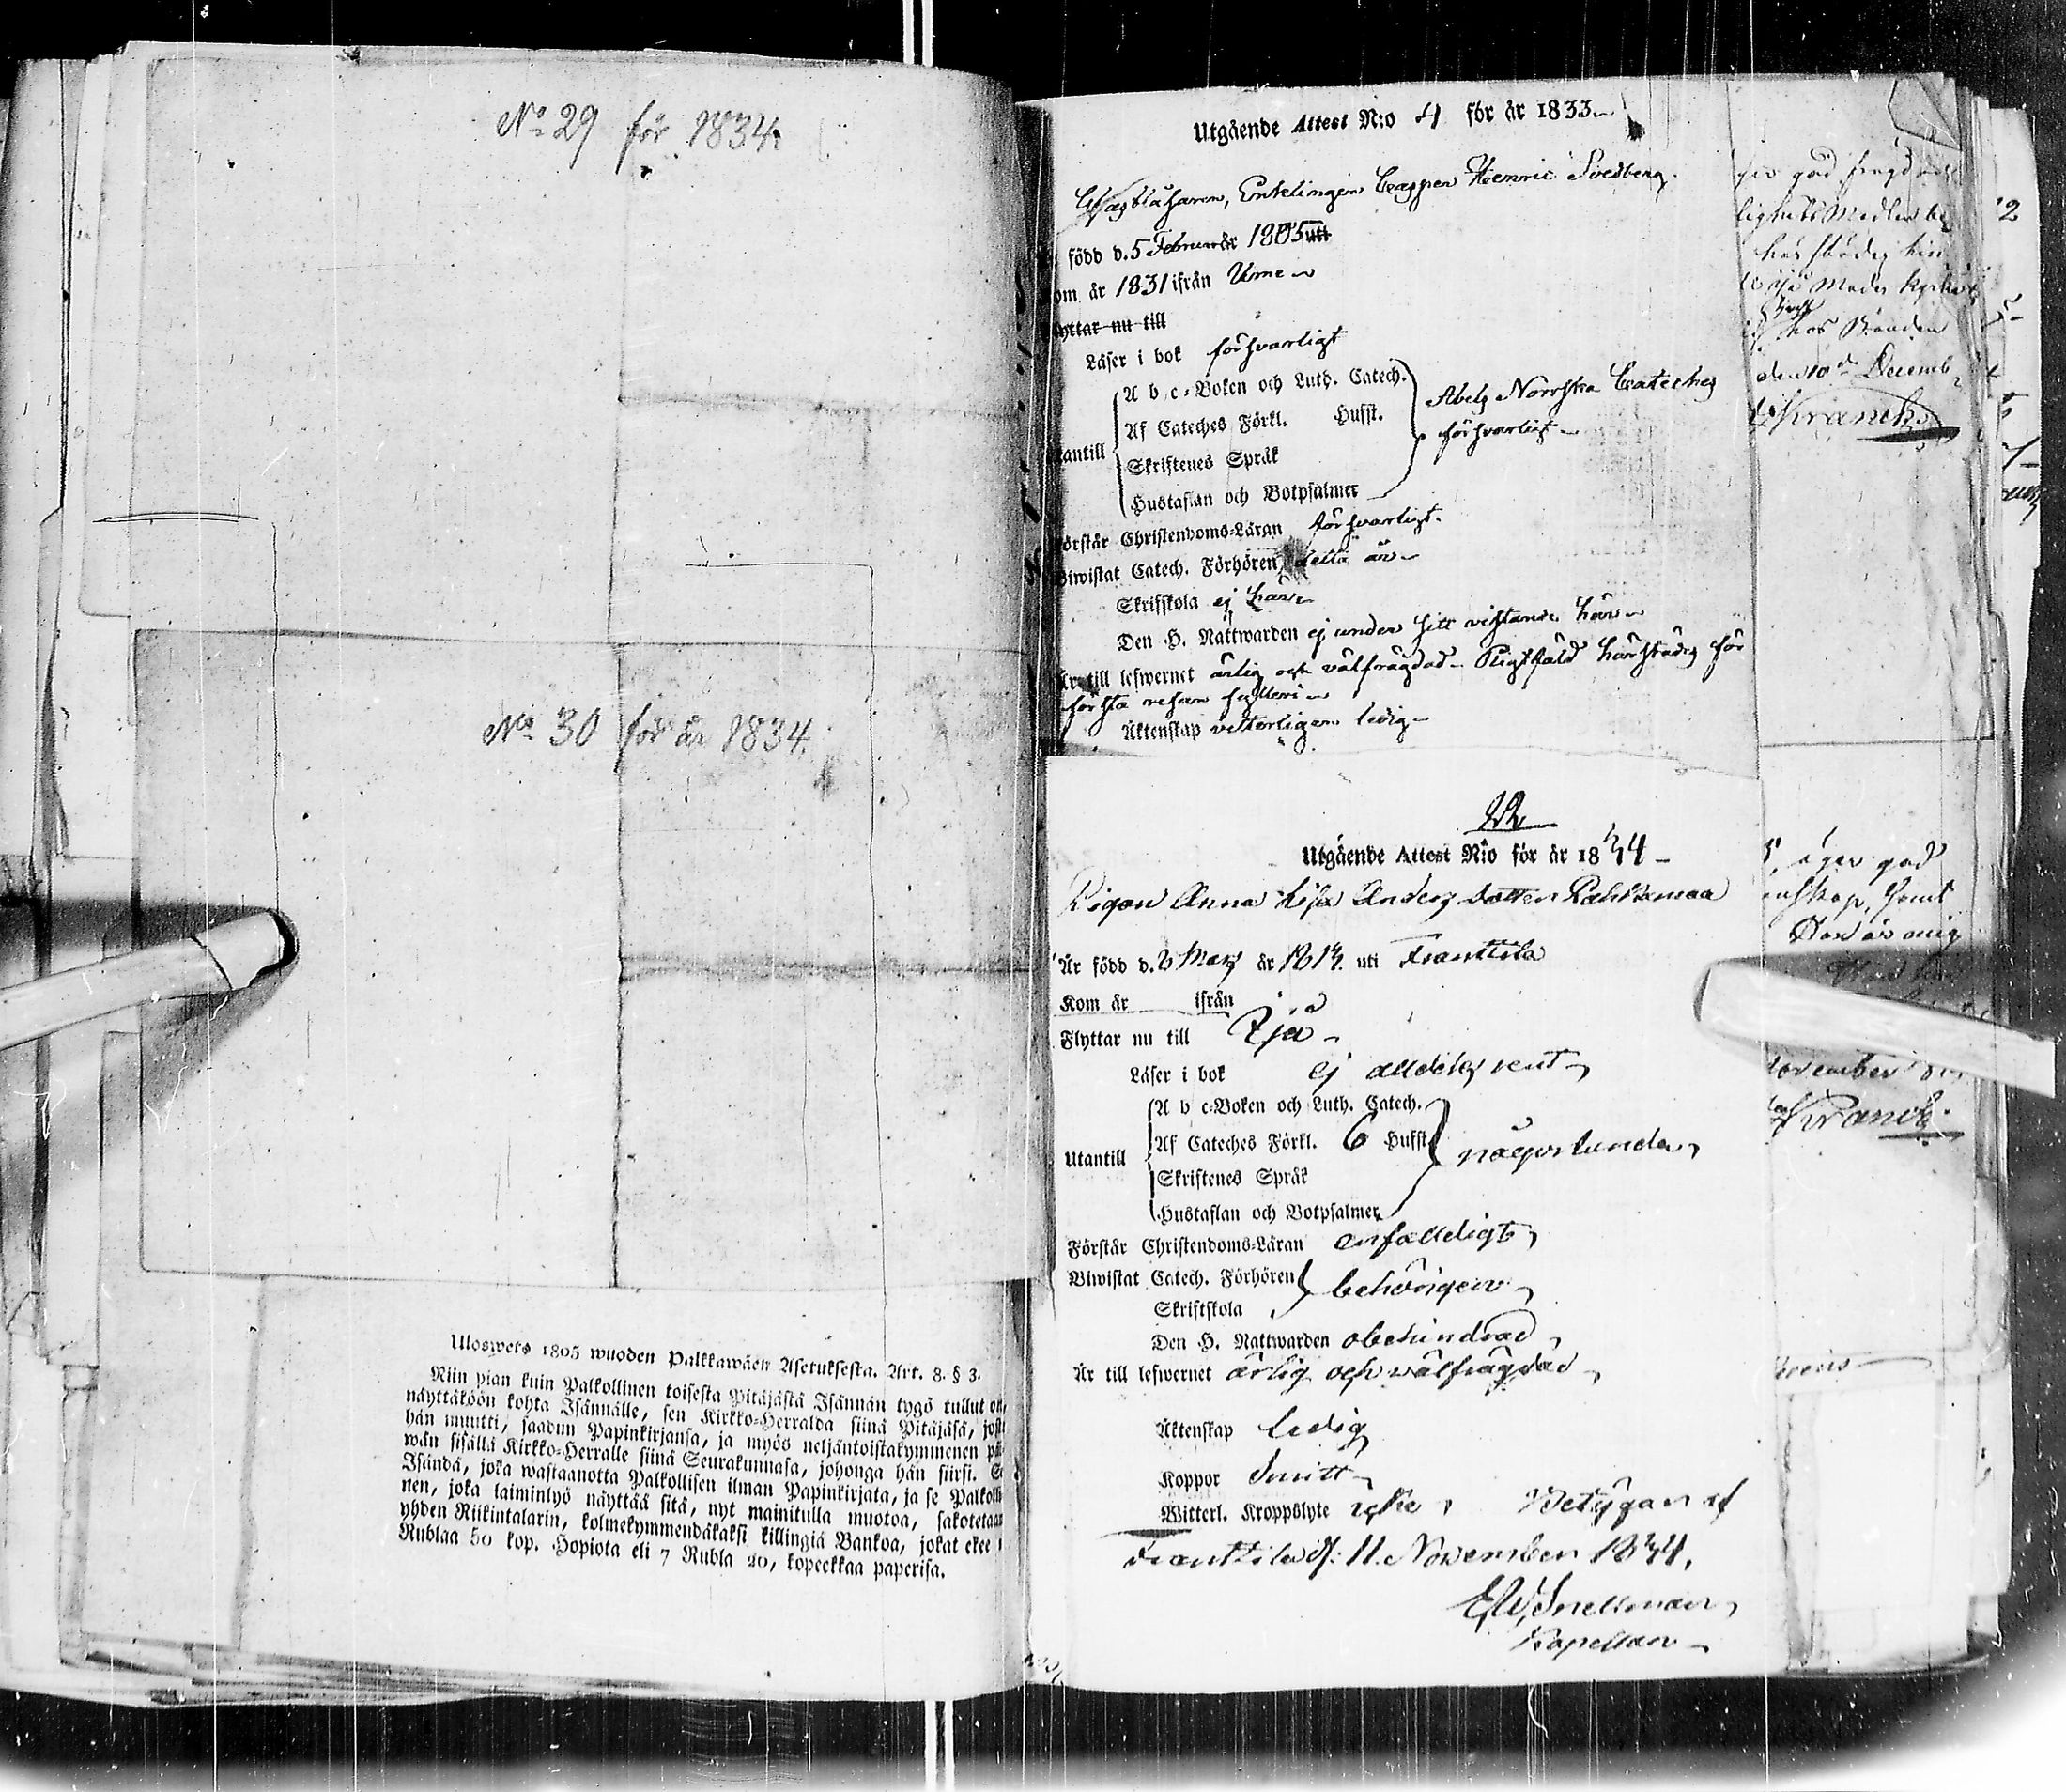 No 29 för 1834.
No 30 för år 1834.
Uloswets 1805 wuoden Palkkawäen Asetuksesta. Art. 8. § 3.
Niin pian kuin Palkollinen toisesta Pitäjästä Isännän tygö tullut on,
näyttäköön kohta Isännälle, sen Kirkko-Herralda siinä Pitäjäsä, josta
hän muutti, saadun Papinkirjansa, ja myös neljäntoistakymmenen päi-
wän sisällä Kirkko-Herralle siinä Seurakunnasa, johonga hän siirsi. Se
Isändä, joka wastaanotta Palkollisen ilman Papinkirjata, ja se Palkolli-
nen, joka laiminlyö näyttää sitä, nyt mainitulla muotoa, sakotetaan
yhden Riikintalarin, kolmekymmendäkaksi killingiä Bankoa, jokat ekee 1
Rublaa 50 kop. Hopiota eli 7 Rubla 20, kopeekkaa paperisa.
Utgående Attest N:o 4 för år 1833
Enklingen Casper Henric Svedberg.
född d. 5 Februar 1805 uti
om år 1831 ifrån Ume
yttar nu till
Läser i bok försvarligt
A b c-Boken och Luth. Catech.
Af Cateches Förkl. Hufst.
antill
Skriftenes Språk
Hustaflan och Botpsalmer
Abels Norrska Cateches
försvarligt
örstår Christendoms-Läran försvarligt.
Biwistat Catech. Förhören detta år
Skrifskola ej här
Den H. Nattwarden ej under sitt vistande här
Är till lefwernet ärlig och välfrägdad. Pligtfäld härstädes för
första resan fylleri
Äktenskap veterligen ledig
Utgående Attest N:o för år 1834
Pigan Anna Lisa Anders dotter Pahkamaa
Är född d. 2 Maij år 1813. uti Frantsila
Kom år ifrån
Flyttar nu till Ijå
Läser i bok ej alldeles rent
A b c-Boken och Luth. Catech.
Af Cateches Förkl. 6 Hufst.
Utantill
någorlunda
Skriftenes Språk
Hustaflan och Botpsalmer
Förstår Christendoms-Läran enfalldigt
Biwistat Catech. Förhören behörigen
Skriftskola
Den H. Nattwarden obehindrad
Är till lefwernet ärlig och wälfrägdad
Äktenskap ledig
Koppor Smitt
Witterl. Kroppslyte icke Betygar af
Frantsila d: 11. November 1834.
E W Snellman
Kapellan
hos Bonden
den 10de Decemb
Franck
äger god
November
Franck